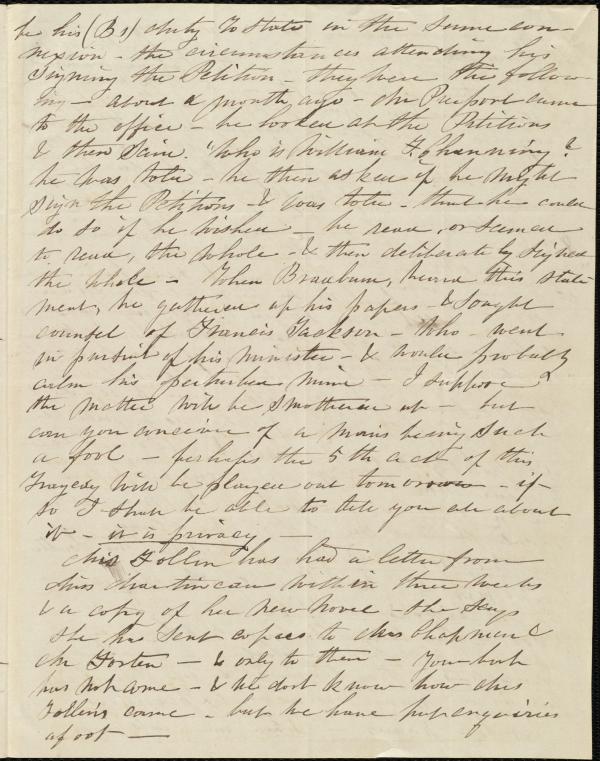 be his (Bs) duty to state in the same con-
nexion - the circumstances attending his
signing the Petition - they were the follow-
ing - about a month ago - Mr Pierpont came
to the office - he looked at the Petitions
& then said. "Who is William F. Channing?
he was told - he then asked if he might
sign the Petitions - & was told - that he could
do so if he wished - he read, or seemed
to read, the whole - & then deliberately signed
the whole - When Bradburn, heard this state
ment, he gathered up his papers - & sought
counsel of Francis Jackson - who - went
in pursuit of his minister - & would probably
calm his perturbed mind - I suppose
the matter will be smothered up - but
can you conceive of a man's being such
a fool - perhaps the 5th act of this
tragedy will be played out tomorrow - if
so I shall be able to tell you all about
it - it is privacy -
Mrs Follen has had a letter from
Miss Martineau within three weeks
& a copy of her new novel - she says
she has sent copies to Mrs Chapman &
Mr Forten - & only to them - Your book
has not come - & we dont know how Mrs
Follens came - but we have put enquiries
afoot -